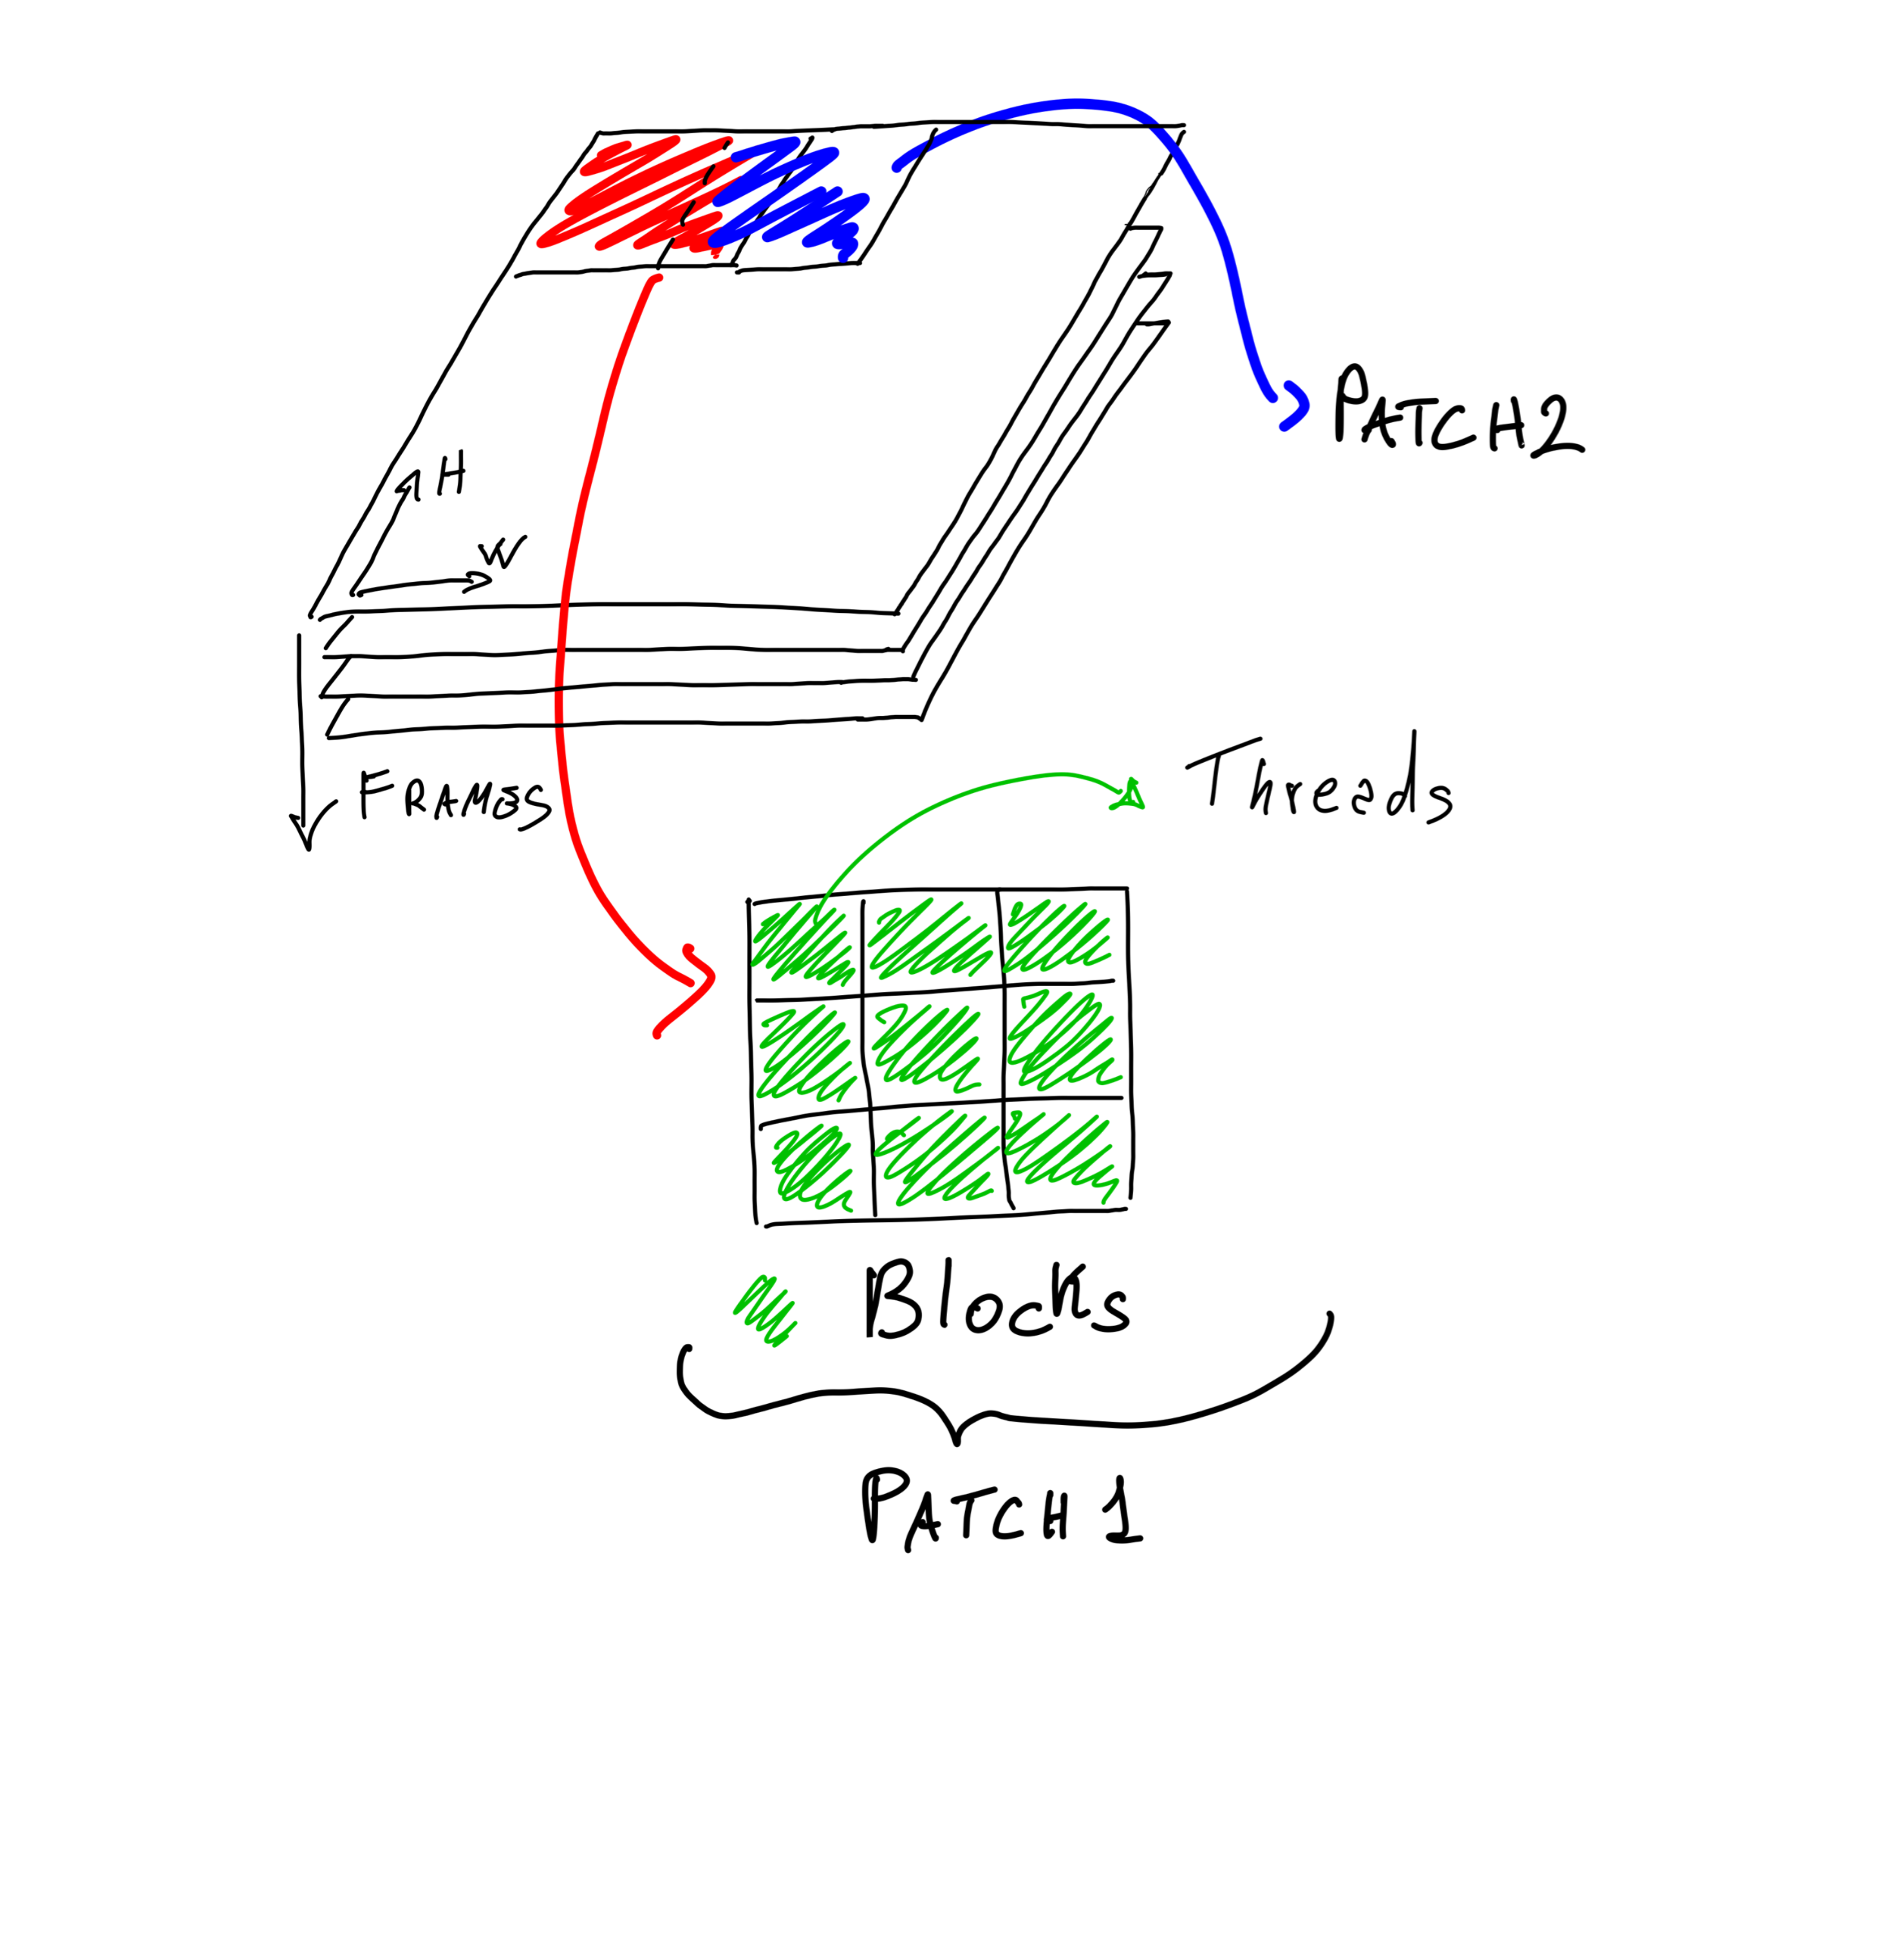 PATCH2
H
W
FRAMES
Threads
Blocks
PATCH 1